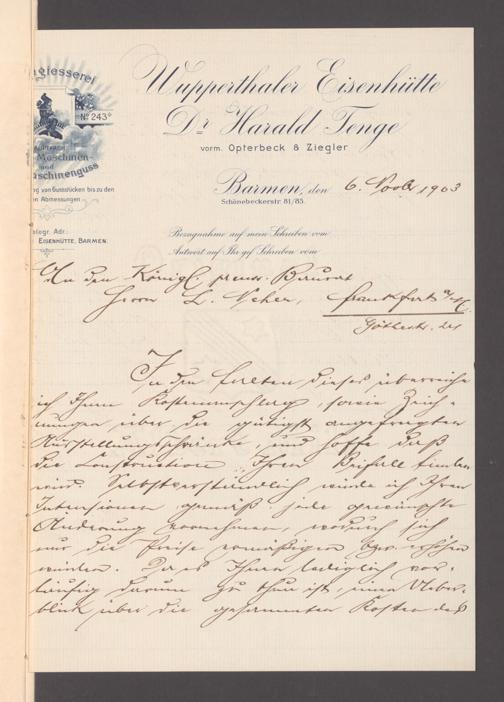 giesserei
No 243
Maschinen-
und
aschinenguss
ng von Gussstücken bis zu den
en Abmessungen
elegr. Adr.:
EISENHÜTTE, BARMEN.
Wupperthaler Eisenhütte
Dr Harald Tenge
vorm. Opterbeck & Ziegler
Barmen, den 6. Novbr 1903
Schönebeckerstr. 81/85.
Bezugnahme auf mein Schreiben vom
Antwort auf Ihr gefl Schreiben vom
An den Königl. preuss. Baurat
Herrn L. Neher, Frankfurt a/M.
Göthestr.
In den Falten dieses überreiche
ich Ihnen Kostenanschlag, sowie Zeich-
nungen über die gütigst angefragten
Ausstellungsschränke, und hoffe daß
die Construction Ihren Beifall finden
wird. Selbstverständlich würde ich Ihren
Intensionen gemäß jede gewünschte
Änderung vornehmen, wodurch sich
nur die Preise ermäßigen bzw. erhöhen
würden. Da es Ihnen lediglich vor-
läufig darum zu thun ist, einen Ueber-
blick über die gesammten Kosten des